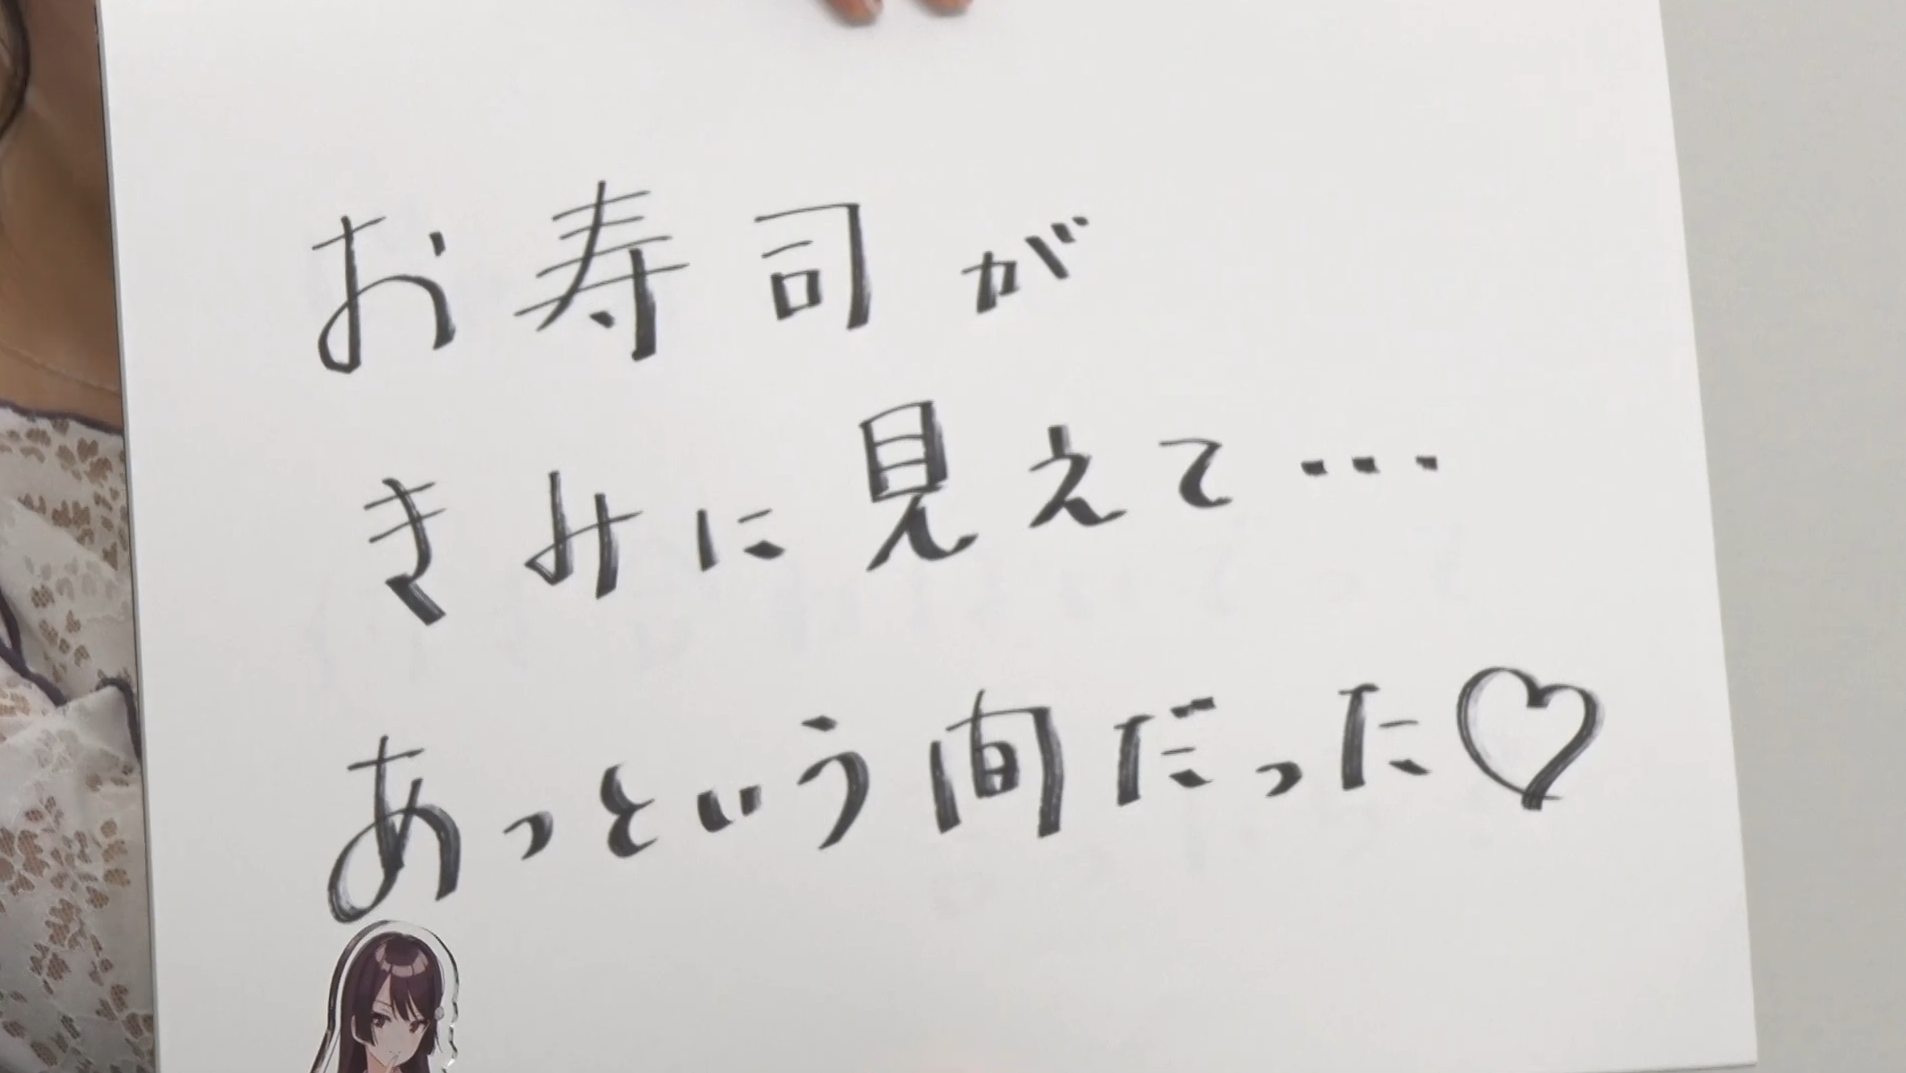 お寿司が
きみに見えて…
あっという間だった♡